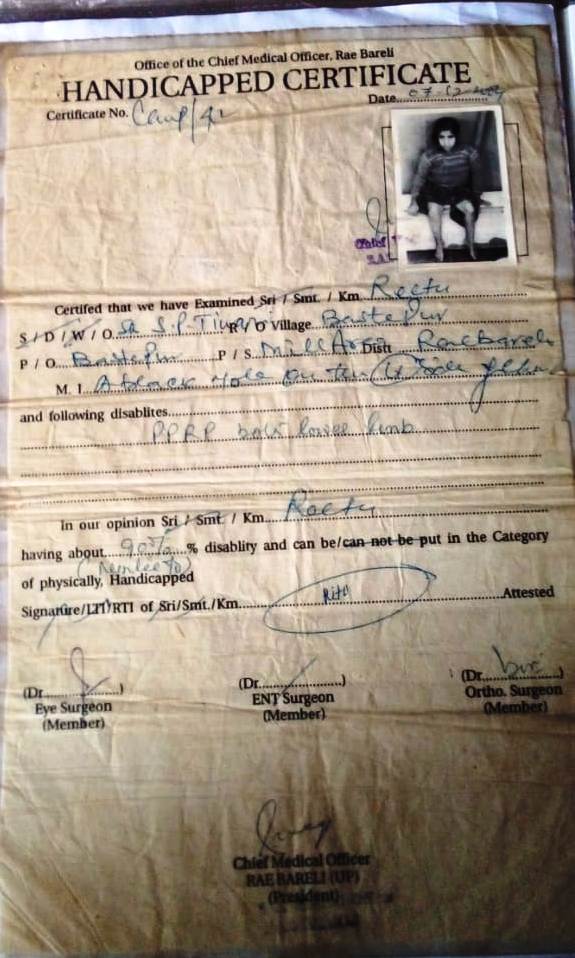 Office of the Chief Medical Officer, Rae Bareli
HANDICAPPED CERTIFICATE
Certificate No. Camp/42
Date 07-12-
Certifed that we have Examined Sri / Smt. / Km. Reetu
S / D / W / O. S.P. Tiwari R/O Village Bastepur
P / O. Bastepur P / S. Mill Area Distt Raebareli
M. I. A black mole on the Side
and following disablites
PPRP both lower limb
In our opinion Sri / Smt. / Km. Reetu
having about 90% % disablity and can be/can not be put in the Category
(Nomlee %)
of physically, Handicapped
Signature/LTI/RTI of Sri/Smt./Km. Ritu Attested
(Dr. )
Eye Surgeon
(Member)
(Dr. )
ENT Surgeon
(Member)
(Dr. )
Ortho. Surgeon
(Member)
Chief Medical Officer
RAE BARELI (UP)
(President)